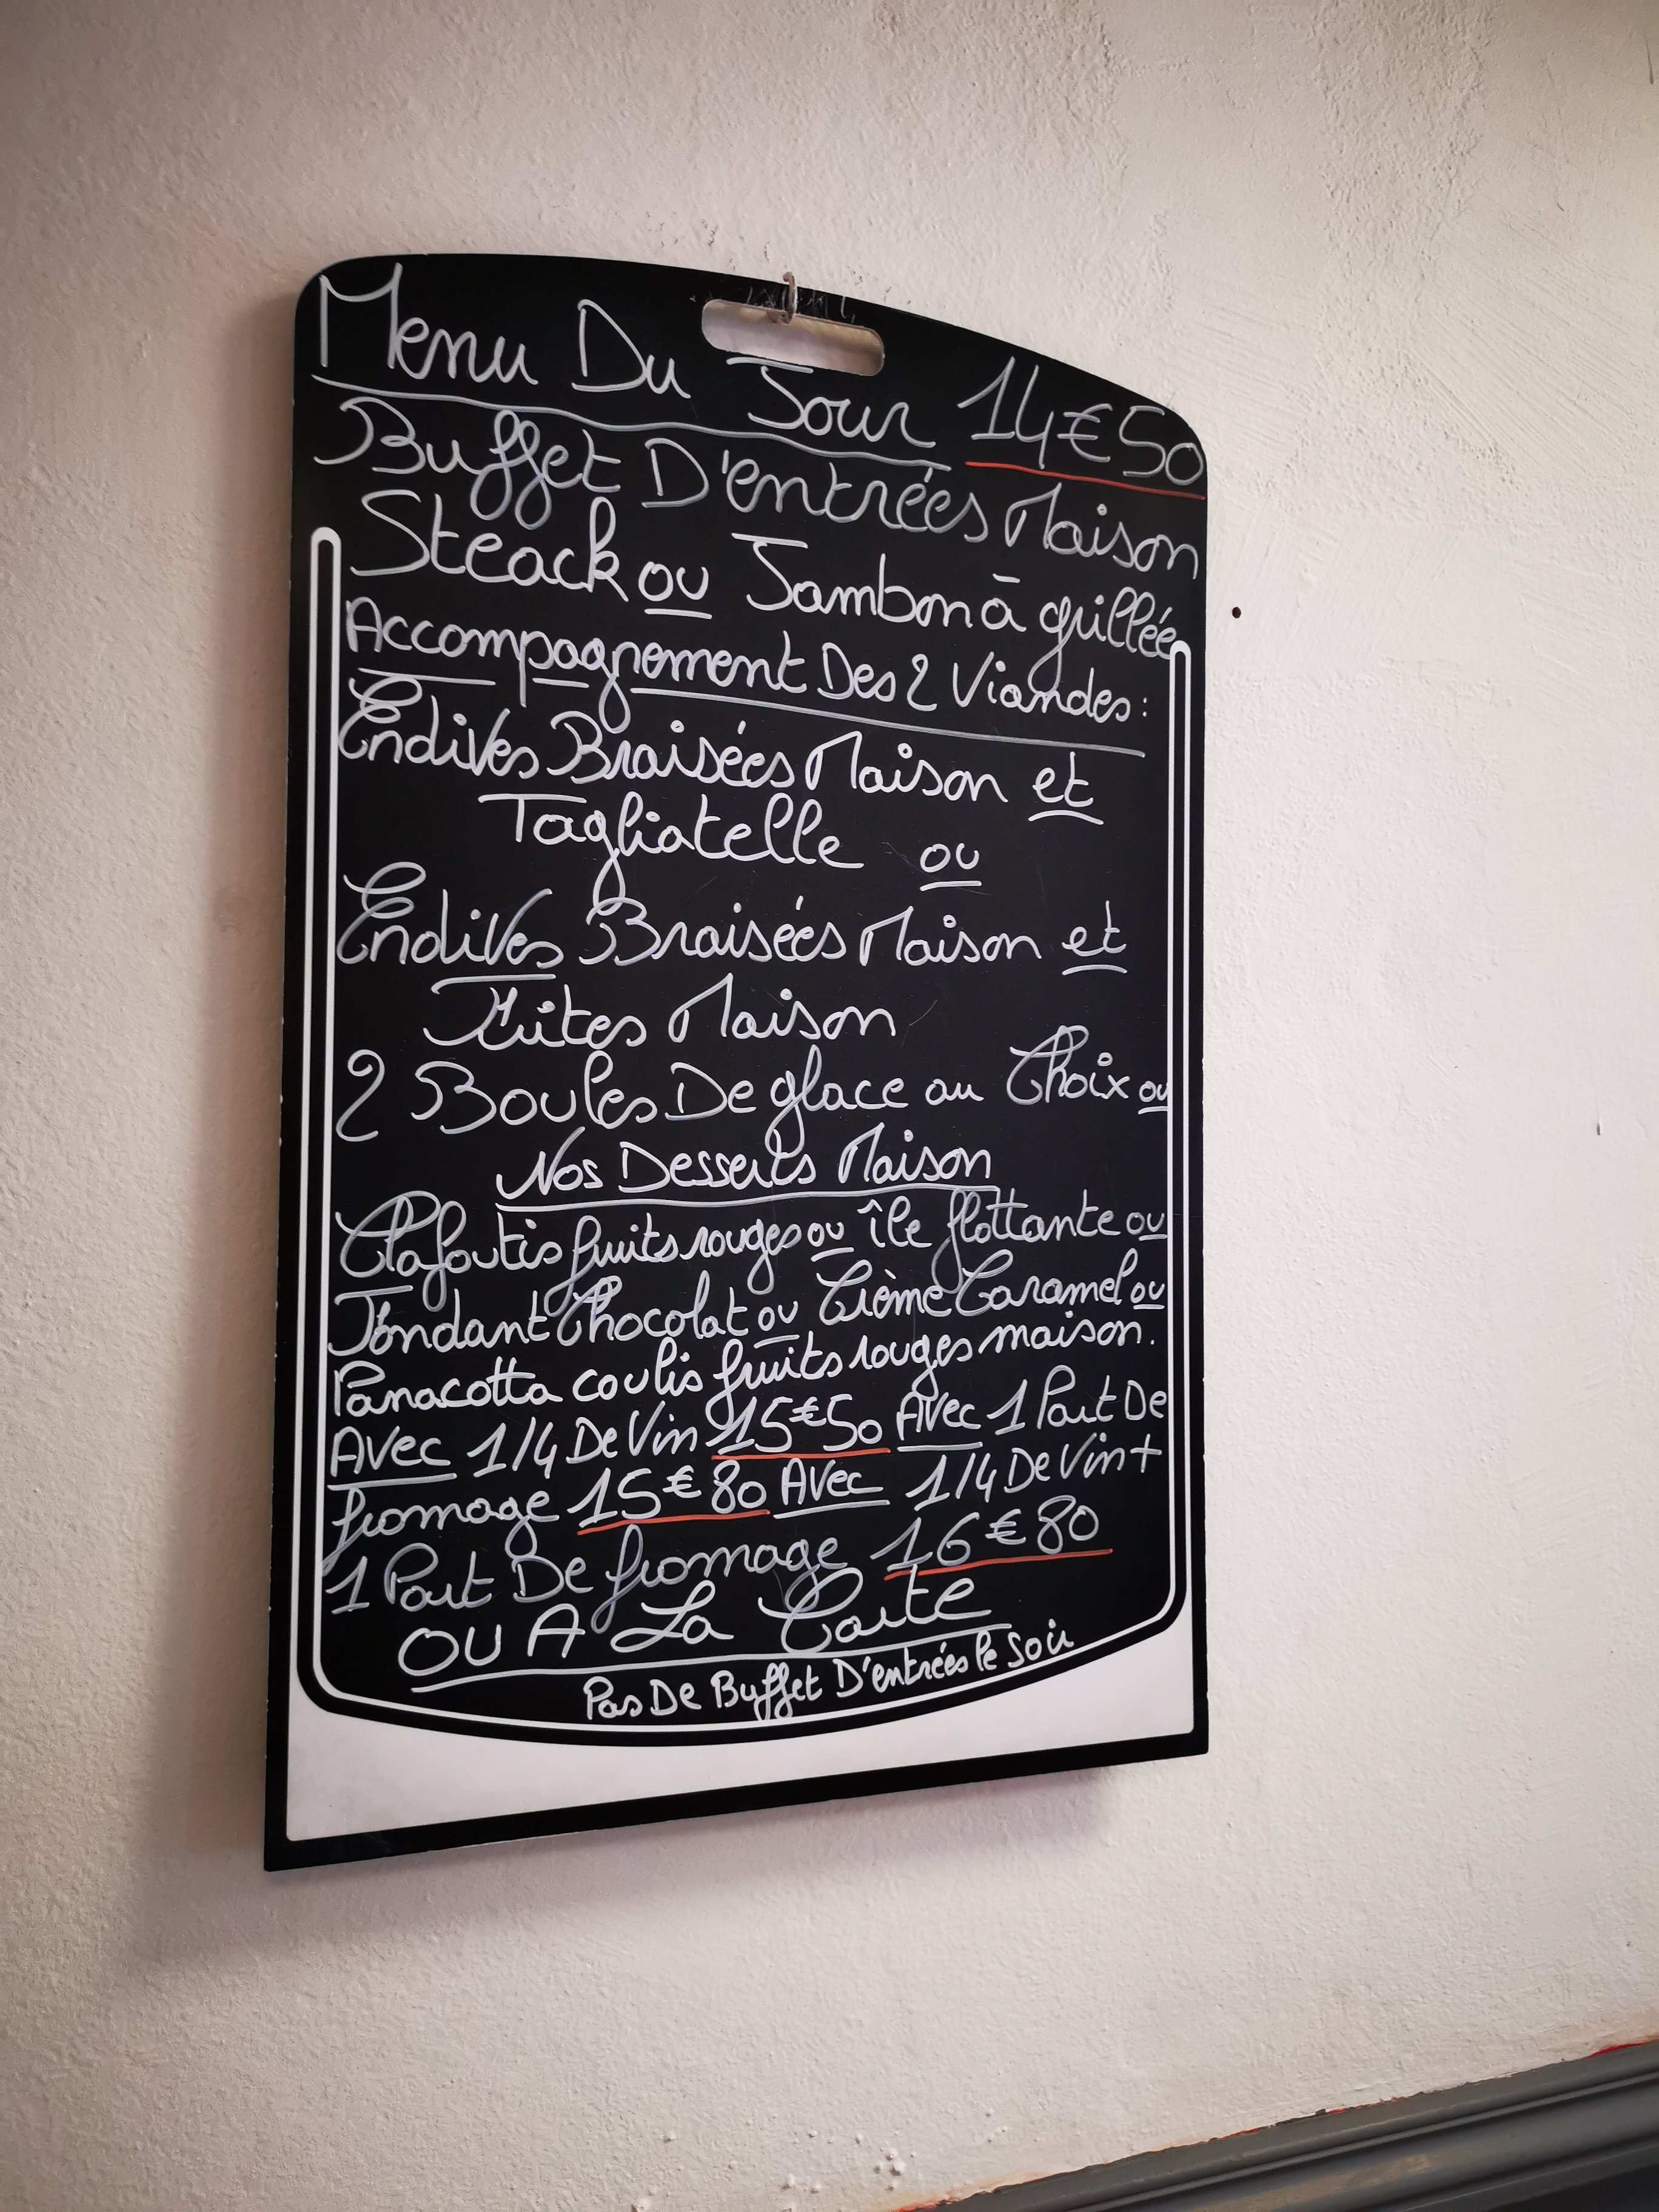 Menu Du Jour 14€50
Buffet D'entrées Maison
Steack ou Jambon à grillée
Accompagnement Des 2 Viandes:
Endives Braisées Maison et
Tagliatelle ou
Endives Braisées Maison et
Frites Maison
2 Boules De glace au Choix ou
Nos Desserts Maison
Clafoutis fruits rouges ou île flottante ou
Fondant Chocolat ou Crème Caramel ou
Panacotta coulis fruits rouges maison.
Avec 1/4 De Vin 15€50 Avec 1 Part De
fromage 15€80 Avec 1/4 De Vin +
1 Part De fromage 16€80
OU A La Carte
Pas De Buffet D'entrées le Soir